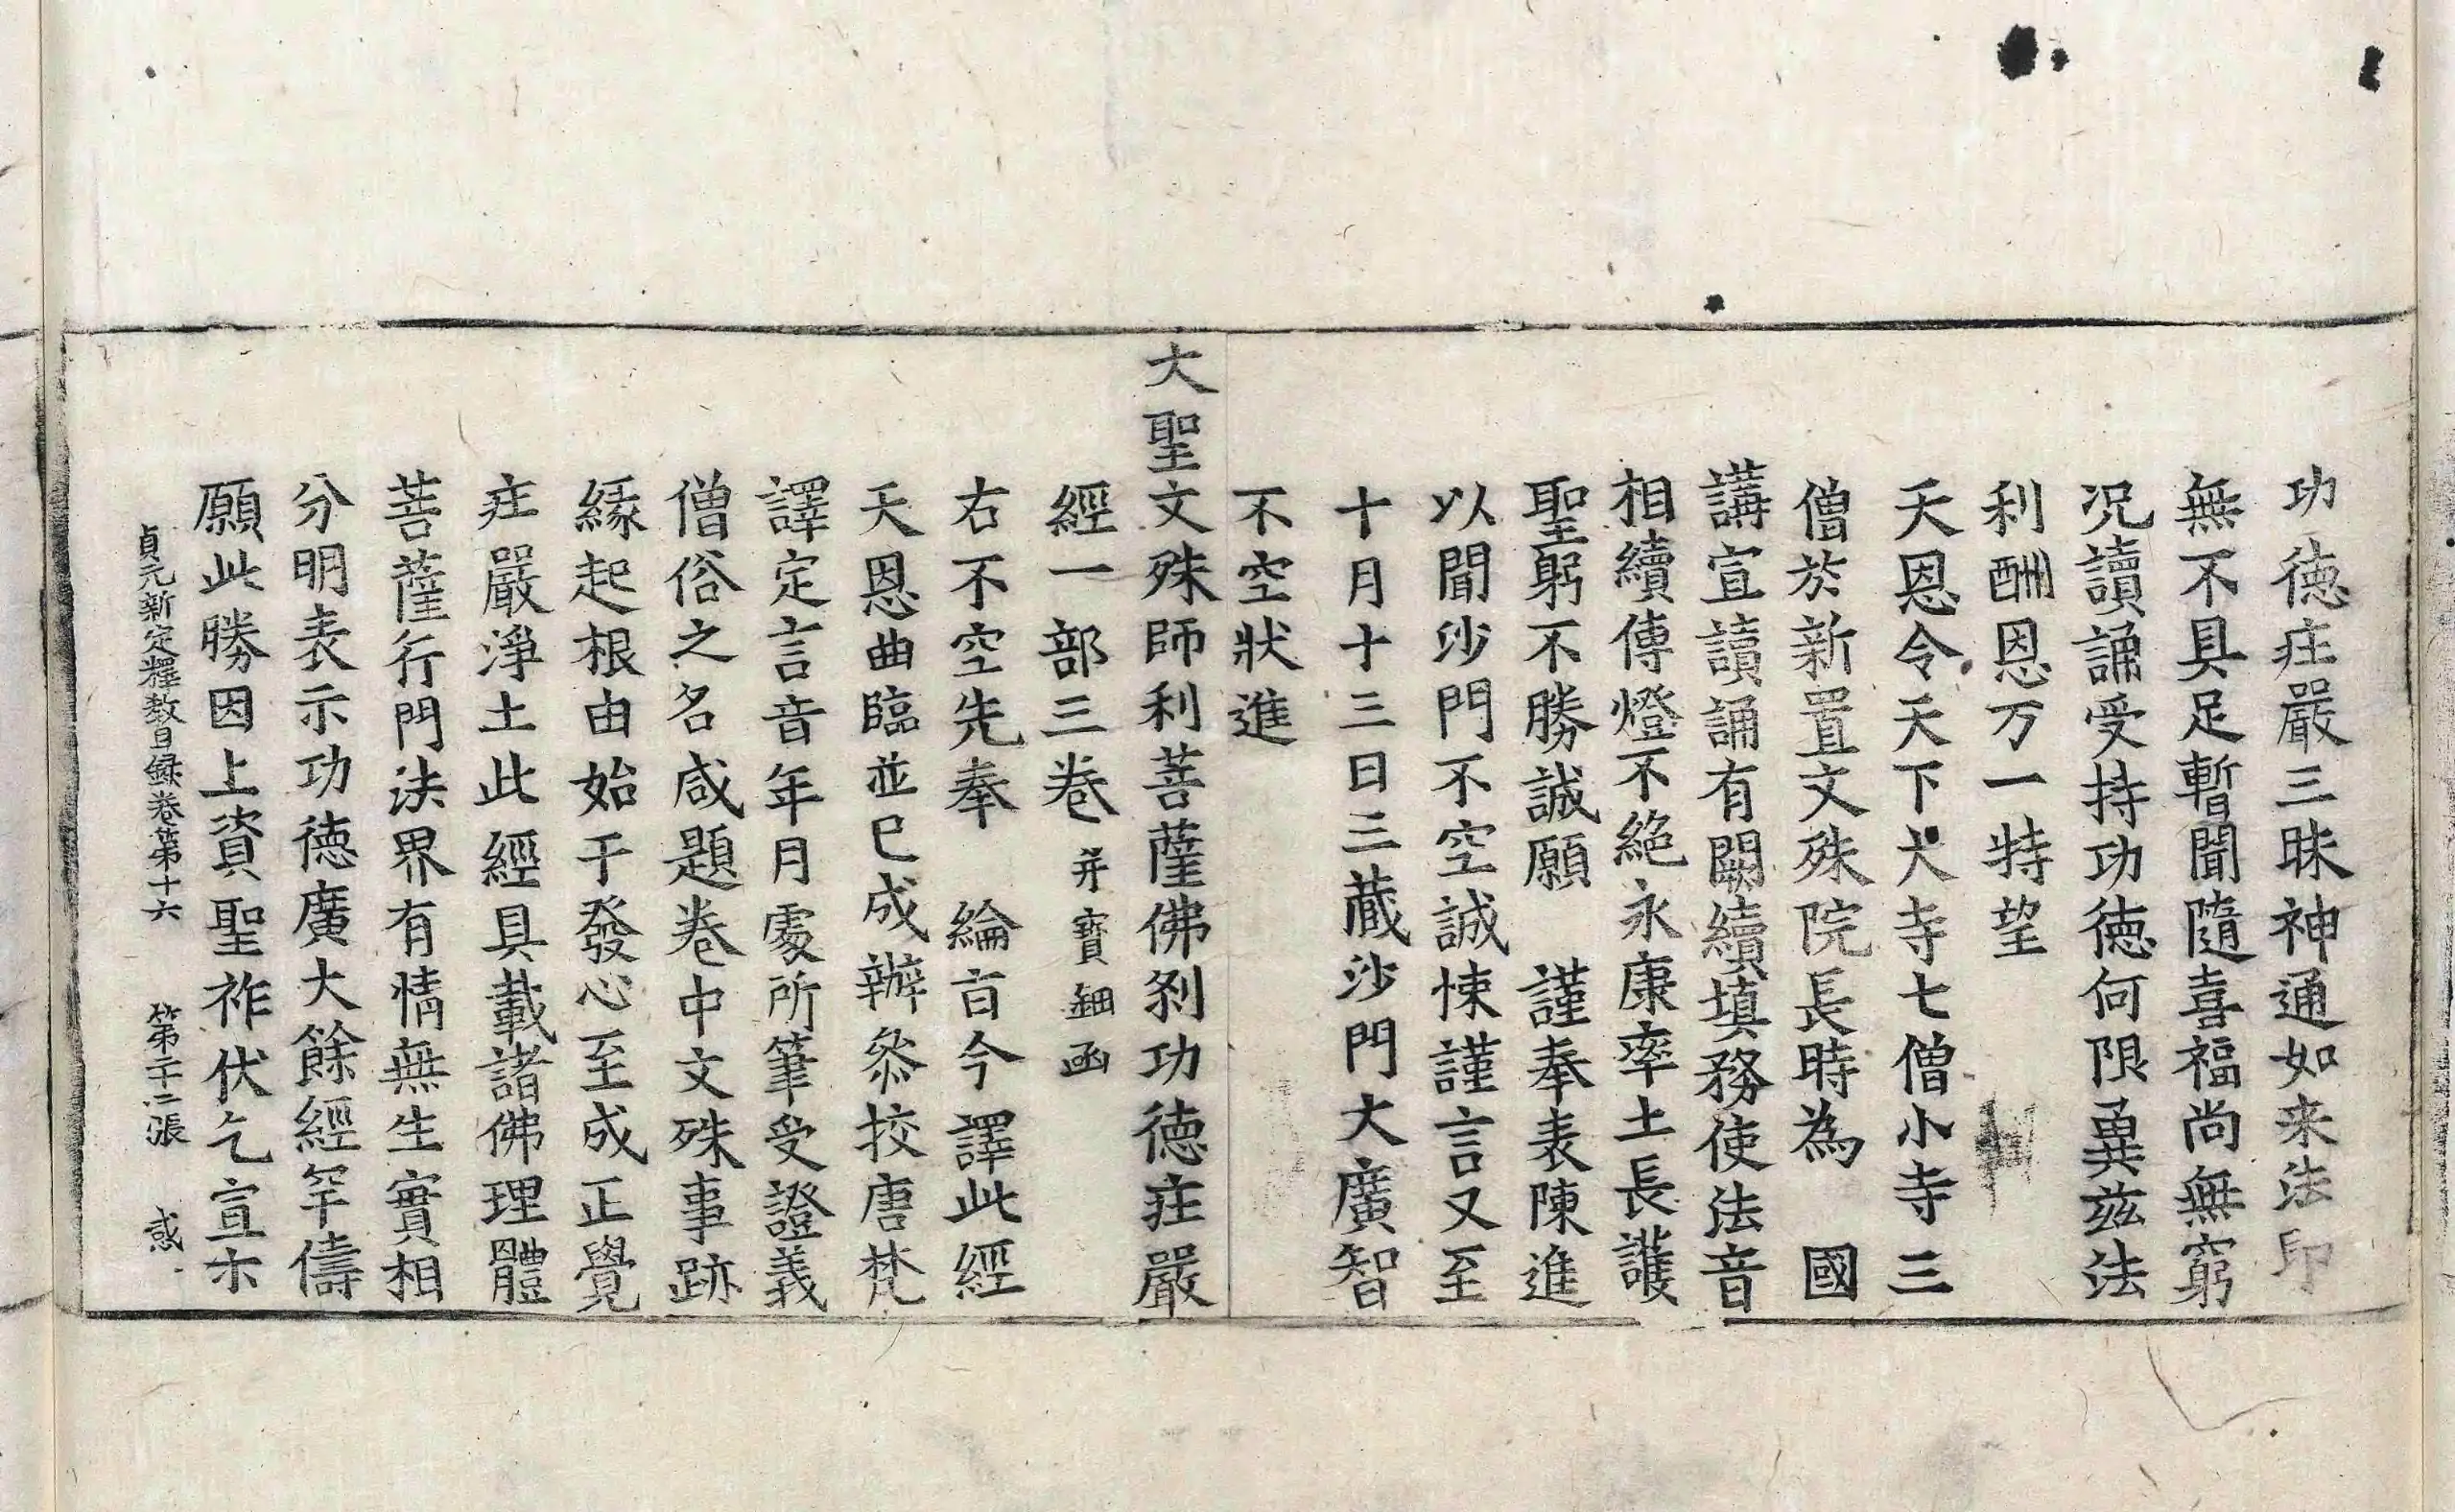 功德庄嚴三昧神通如来法印
無不具足暫聞隨喜福尚無窮
况讀誦受持功德何限兾兹法
利酬恩万一特望
天恩令天下大寺七僧小寺三
僧於新置文殊院長時為　國
講宣讀誦有闕續填務使法音
相續傳燈不絕永康率土長護
聖躬不勝誠願　謹奉表陳進
以聞沙門不空誠悚謹言又至
十月十三日三藏沙門大廣智
不空狀進
大聖文殊師利菩薩佛剎功德庄嚴
經一部三卷并寶鈿函
右不空先奉　綸旨令譯此經
天恩曲臨並已成辦叅挍唐梵
譯定言音年月處所筆受證義
僧俗之名咸題卷中文殊事跡
緣起根由始于發心至成正覺
庄嚴淨土此經具載諸佛理體
菩薩行門法界有情無生實相
分明表示功德廣大餘經罕儔
願此勝因上資聖祚伏乞宣示
貞元新定釋教目録卷第十六　第二十二張